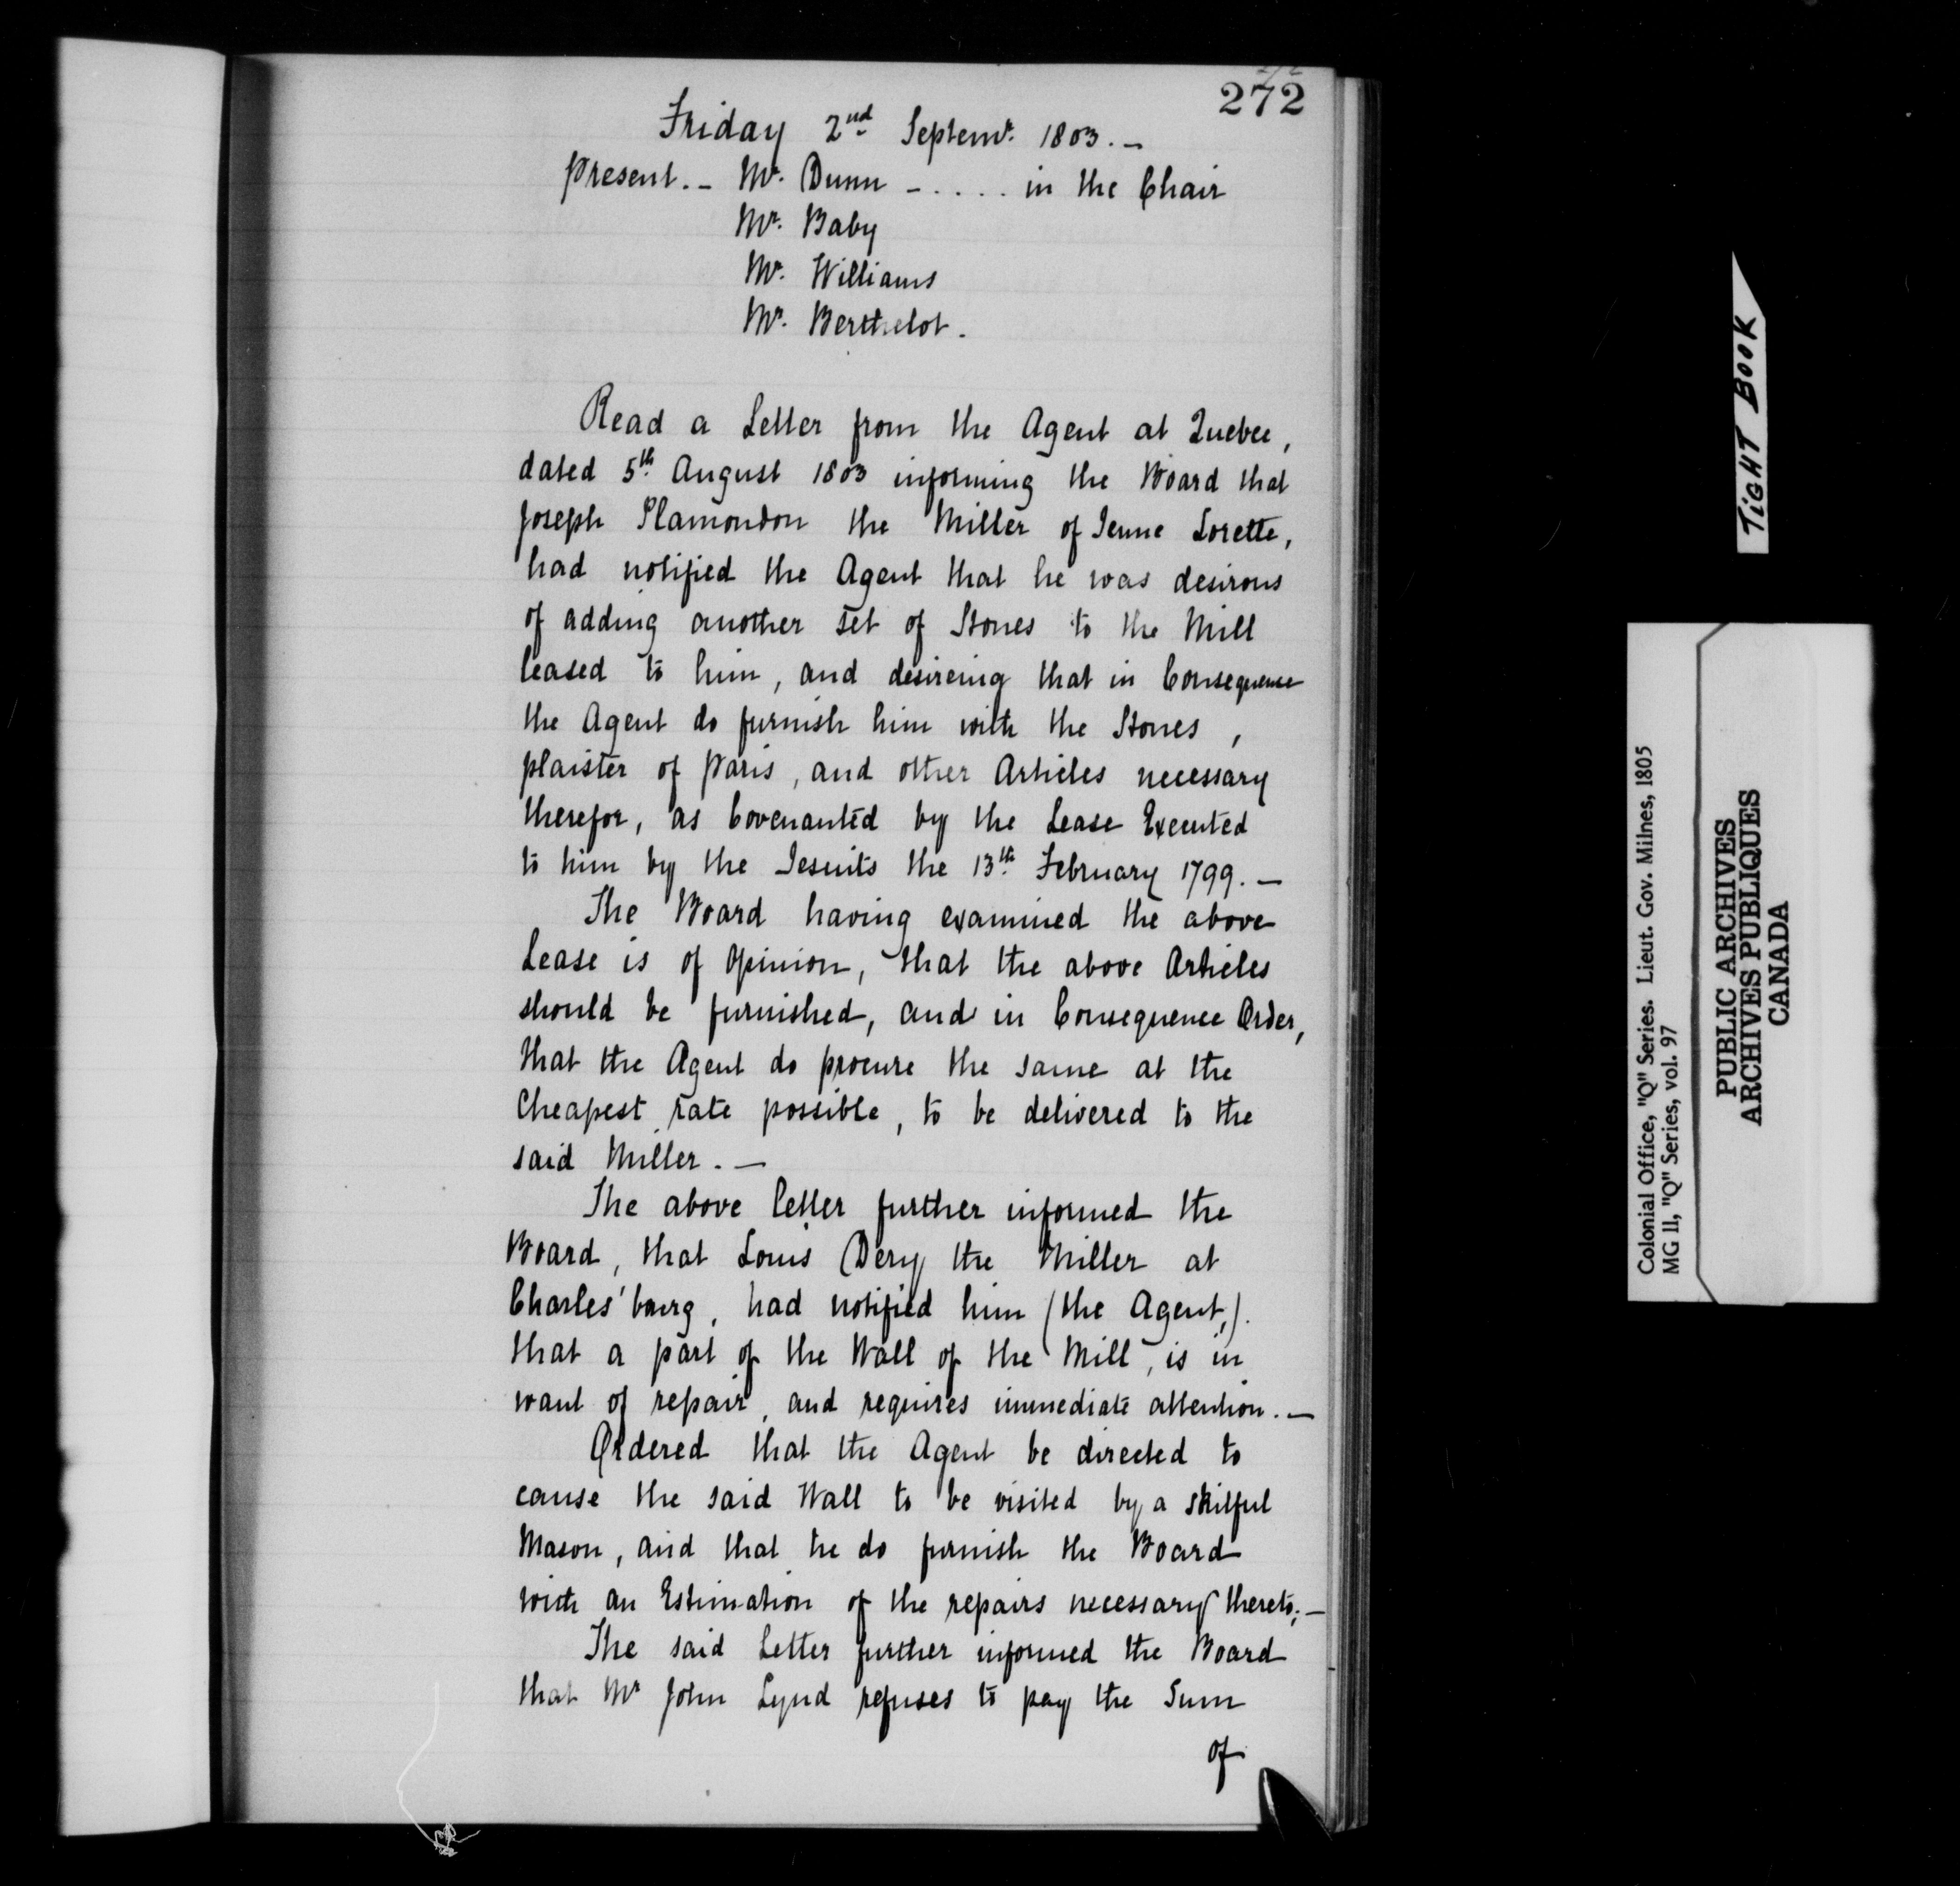 272
Friday 2nd Septemr. 1803. —
Present. — Mr. Dunn — . . . . in the Chair
Mr. Baby
Mr. Williams
Mr. Berthelot.
Read a Letter from the Agent at Quebec,
dated 5th August 1803 informing the Board that
Joseph Plamondon the Miller of Jeune Lorette,
had notified the Agent that he was desirous
of adding another set of Stones to the Mill
leased to him, and desireing that in Consequence
the Agent do furnish him with the Stones,
plaister of Paris, and other Articles necessary
therefor, as Covenanted by the Lease Executed
to him by the Jesuits the 13th February 1799. —
The Board having examined the above
Lease is of Opinion, that the above Articles
should be furnished, and in Consequence Order,
that the Agent do procure the same at the
Cheapest rate possible, to be delivered to the
said Miller. —
The above letter further informed the
Board, that Louis Dery the Miller at
Charles'bourg, had notified him (the Agent,).
that a part of the Wall of the Mill, is in
want of repair, and requires immediate attention. —
Ordered that the Agent be directed to
cause the said Wall to be visited by a skilful
Mason, and that he do furnish the Board
with an Estimation of the repairs necessary thereto; —
The said Letter further informed the Board
that Mr John Lynd refuses to pay the Sum
of
TIGHT BOOK
Colonial Office, "Q" Series. Lieut. Gov. Milnes, 1805
MG 11, "Q" Series, vol. 97
PUBLIC ARCHIVES
ARCHIVES PUBLIQUES
CANADA